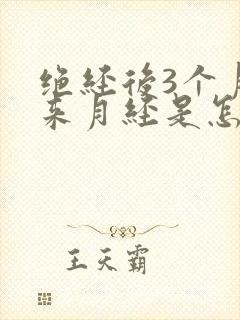 绝经後3个月
来月经是怎
王天霸